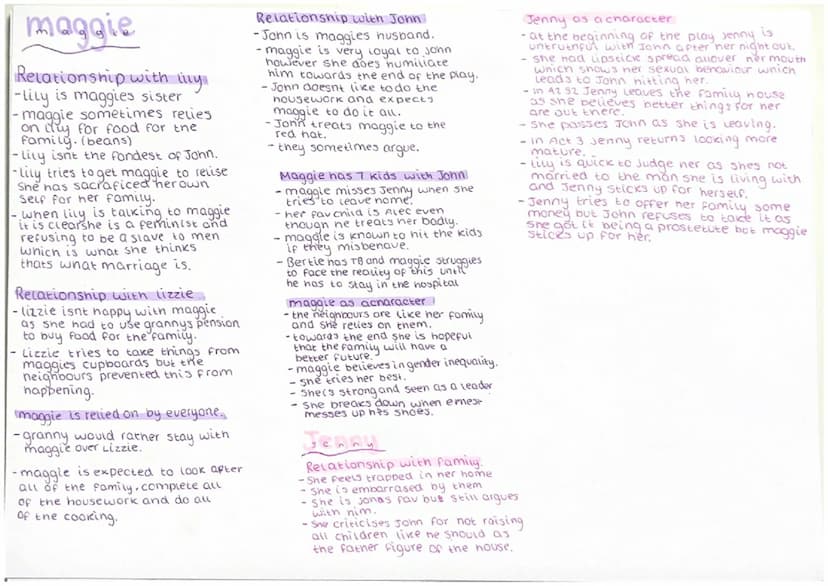 maggie
maggie
Relationship with lily
- lily is maggies sister
- maggie sometimes relies
on lily for food for the
family. (beans)
- lily isnt the fondest of John.
- lily tries to get maggie to relise
she has sacraficed her own
self for her family.
- when lily is talking to maggie
it is clear she is a feminist and
refusing to be a slave to men
which is what she thinks
thats what marriage is.
Relationship with lizzie
- lizzie isnt happy with maggie
as she had to use grannys pension
to buy food for the family.
- Lizzie tries to take things from
maggies cupboards but the
neighbours prevented this from
happening.
maggie is relied on by everyone.
- granny would rather stay with
maggie over Lizzie.
- maggie is expected to look after
all of the family, complete all
of the housework and do all
of the cooking.
Relationship with John
- John is maggies husband.
- maggie is very loyal to john
however she does humiliate
him towards the end of the play.
- John doesnt like to do the
housework and expects
maggie to do it all.
- John treats maggie to the
red hat.
- they sometimes argue.
Maggie has 7 kids with John
- maggie misses Jenny when she
tries to leave home.
- her fav child is Alec even
though he treats her badly.
- maggie is known to hit the kids
if they misbehave.
- Bertie has TB and maggie struggles
to face the reality of this until
he has to stay in the hospital
maggie as a character
- the neighbours are like her family
and she relies on them.
- towards the end she is hopeful
that the family will have a
better future.
- maggie believes in gender inequality.
- she tries her best.
- she is strong and seen as a leader
- She breaks down when ernest
messes up his shoes.
Jenny
Jenny
Relationship with family.
- She feels trapped in her home
- She is embarrased by them
- She is Johns fav but still argues
with him.
- She criticises John for not raising
all children like he should as
the father figure of the house.
Jenny as a character
- at the beginning of the play Jenny is
untruthful with John after her night out.
- she had lipstick spread all over her mouth
which shows her sexual behaviour which
leads to John hitting her.
- in A2 S2 Jenny leaves the family house
as she believes better things for her
are out there.
- She passes John as she is leaving.
- in Act 3 Jenny returns looking more
mature.
- lily is quick to judge her as shes not
married to the man she is living with
and Jenny sticks up for herself.
- Jenny tries to offer her family some
money but John refuses to take it as
she got it being a prostetute but maggie
sticks up for her.